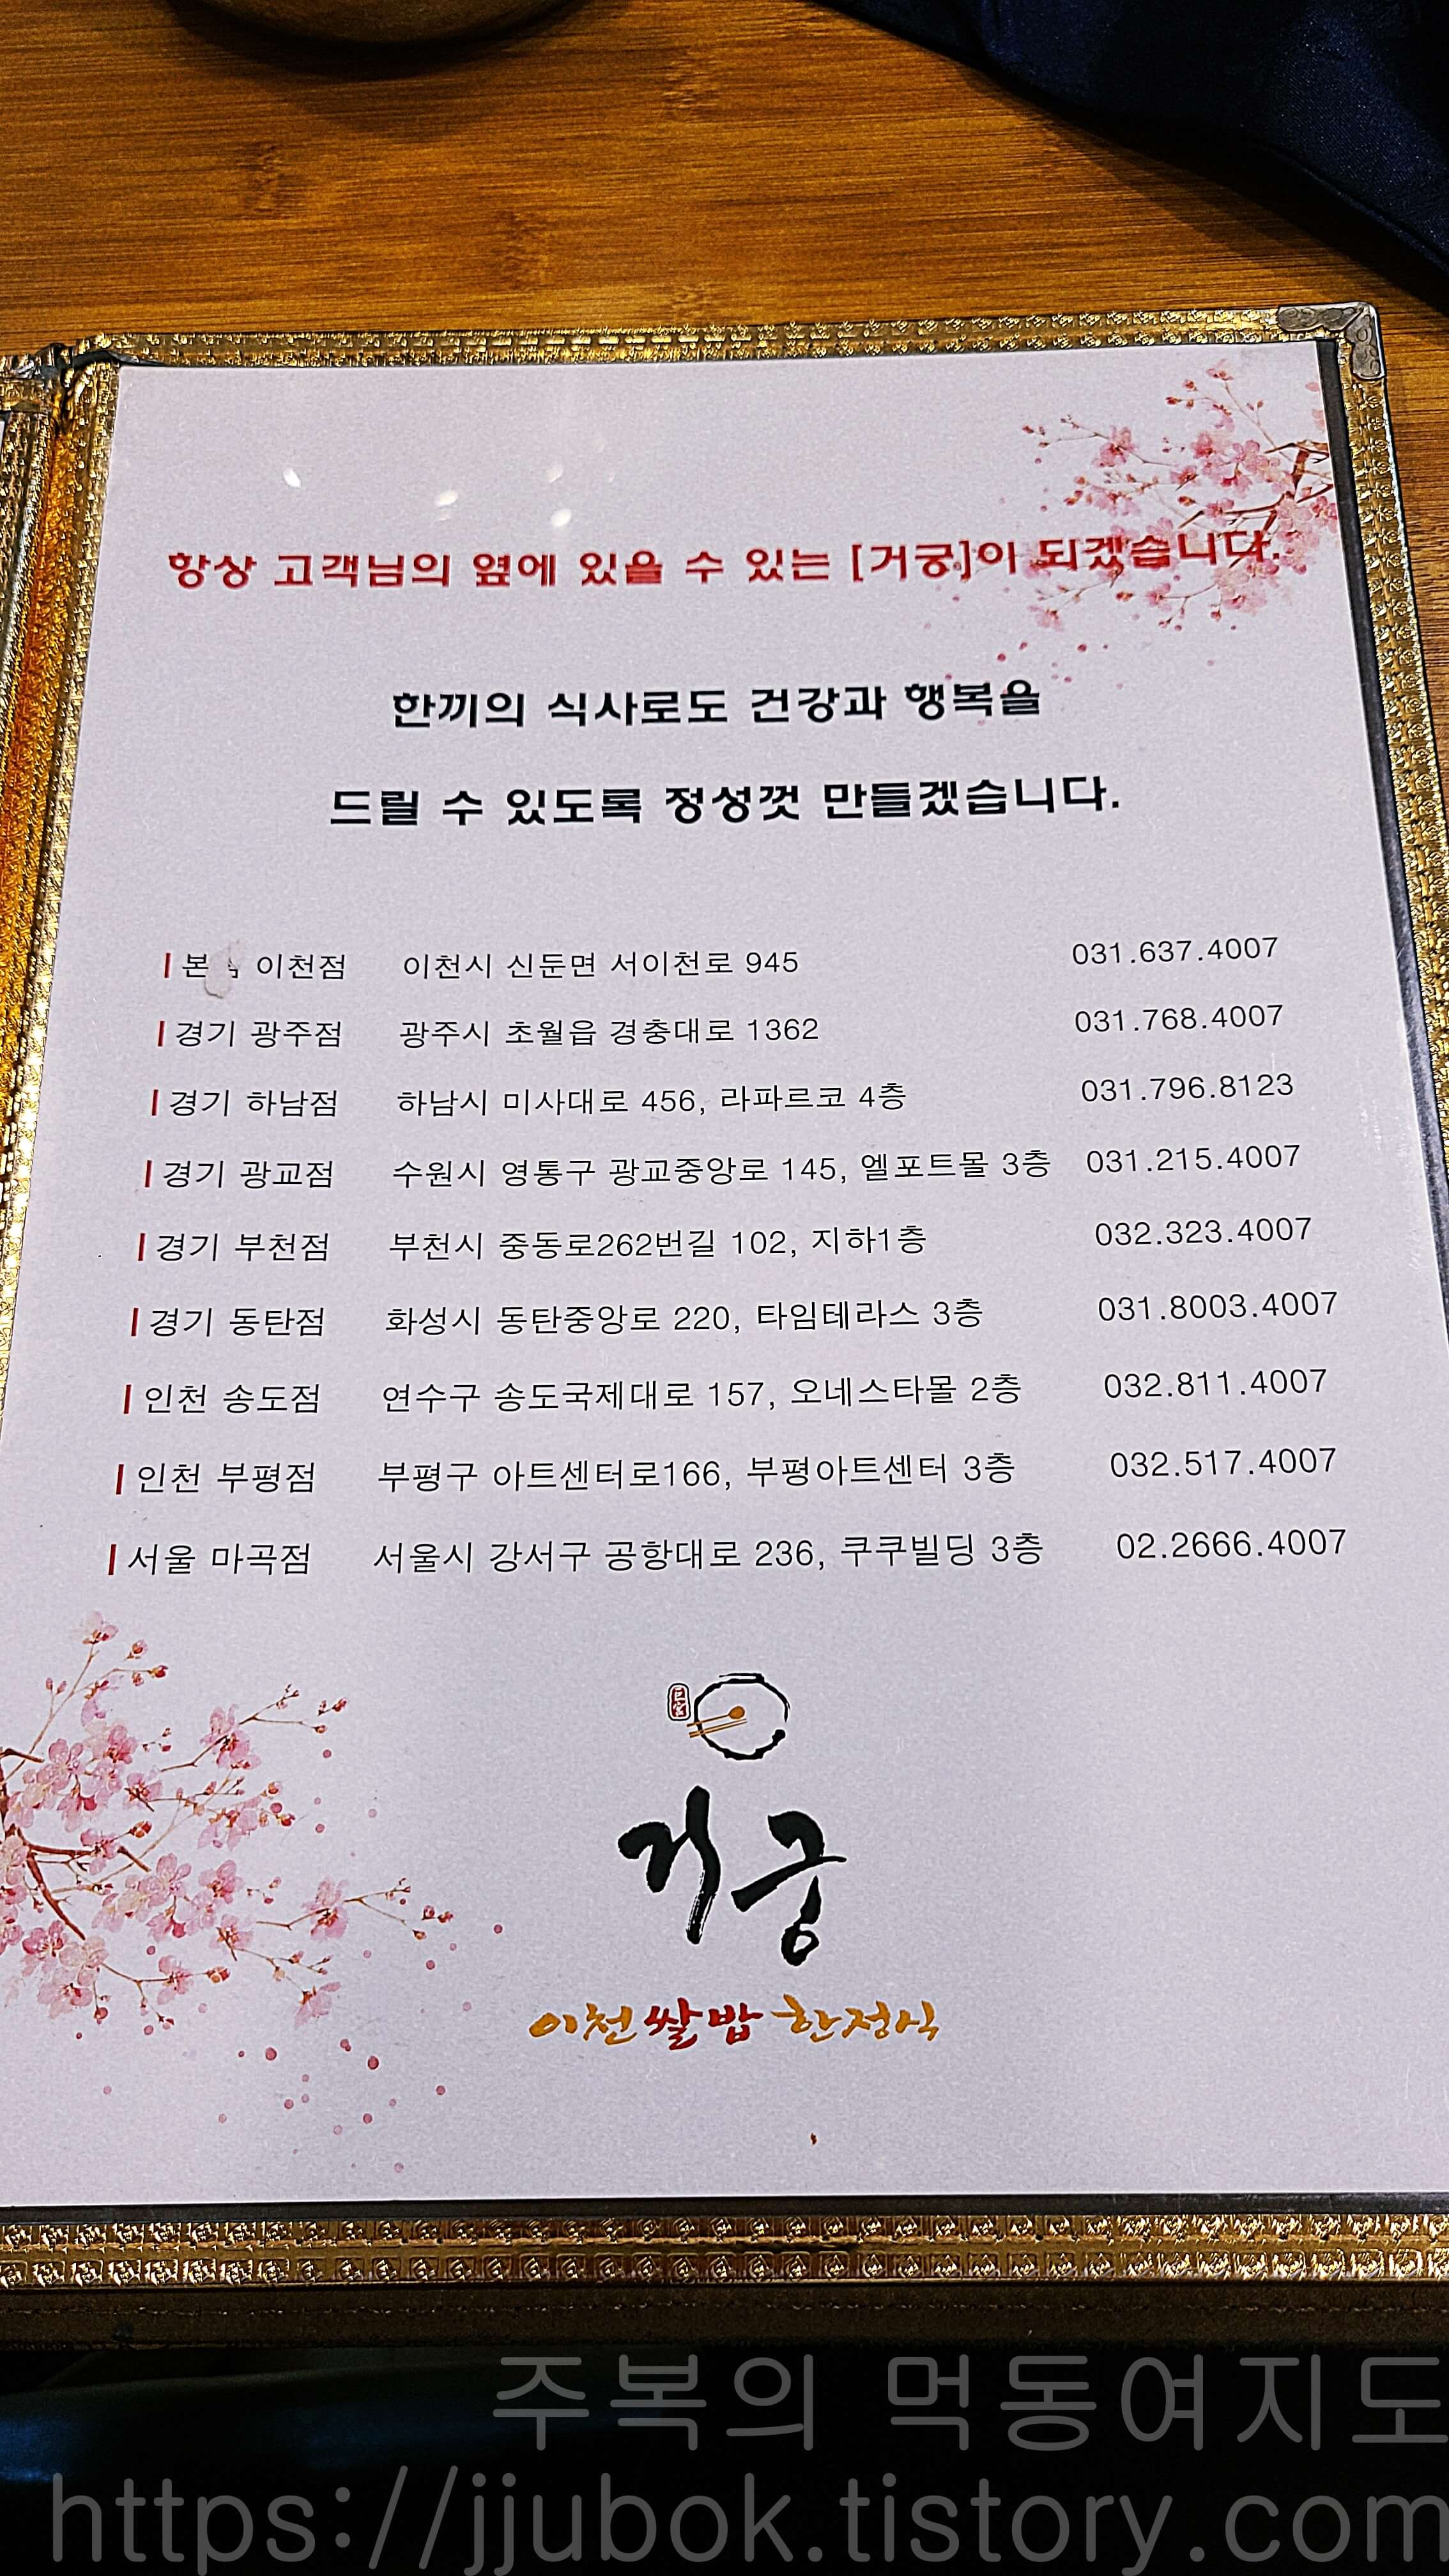 항상 고객님의 옆에 있을 수 있는 [거궁]이 되겠습니다.
한끼의 식사로도 건강과 행복을
드릴 수 있도록 정성껏 만들겠습니다.
이천점 이천시 신둔면 서이천로 945 031.637.4007
경기 광주점 광주시 초월읍 경충대로 1362 031.768.4007
경기 하남점 하남시 미사대로 456, 라파르코 4층 031.796.8123
경기 광교점 수원시 영통구 광교중앙로 145, 엘포트몰 3층 031.215.4007
경기 부천점 부천시 중동로262번길 102, 지하1층 032.323.4007
경기 동탄점 화성시 동탄중앙로 220, 타임테라스 3층 031.8003.4007
인천 송도점 연수구 송도국제대로 157, 오네스타몰 2층 032.811.4007
인천 부평점 부평구 아트센터로166, 부평아트센터 3층 032.517.4007
서울 마곡점 서울시 강서구 공항대로 236, 쿠쿠빌딩 3층 02.2666.4007
巨宮
거궁
이천쌀밥한정식
주복의 먹동여지도
https://jjubok.tistory.com